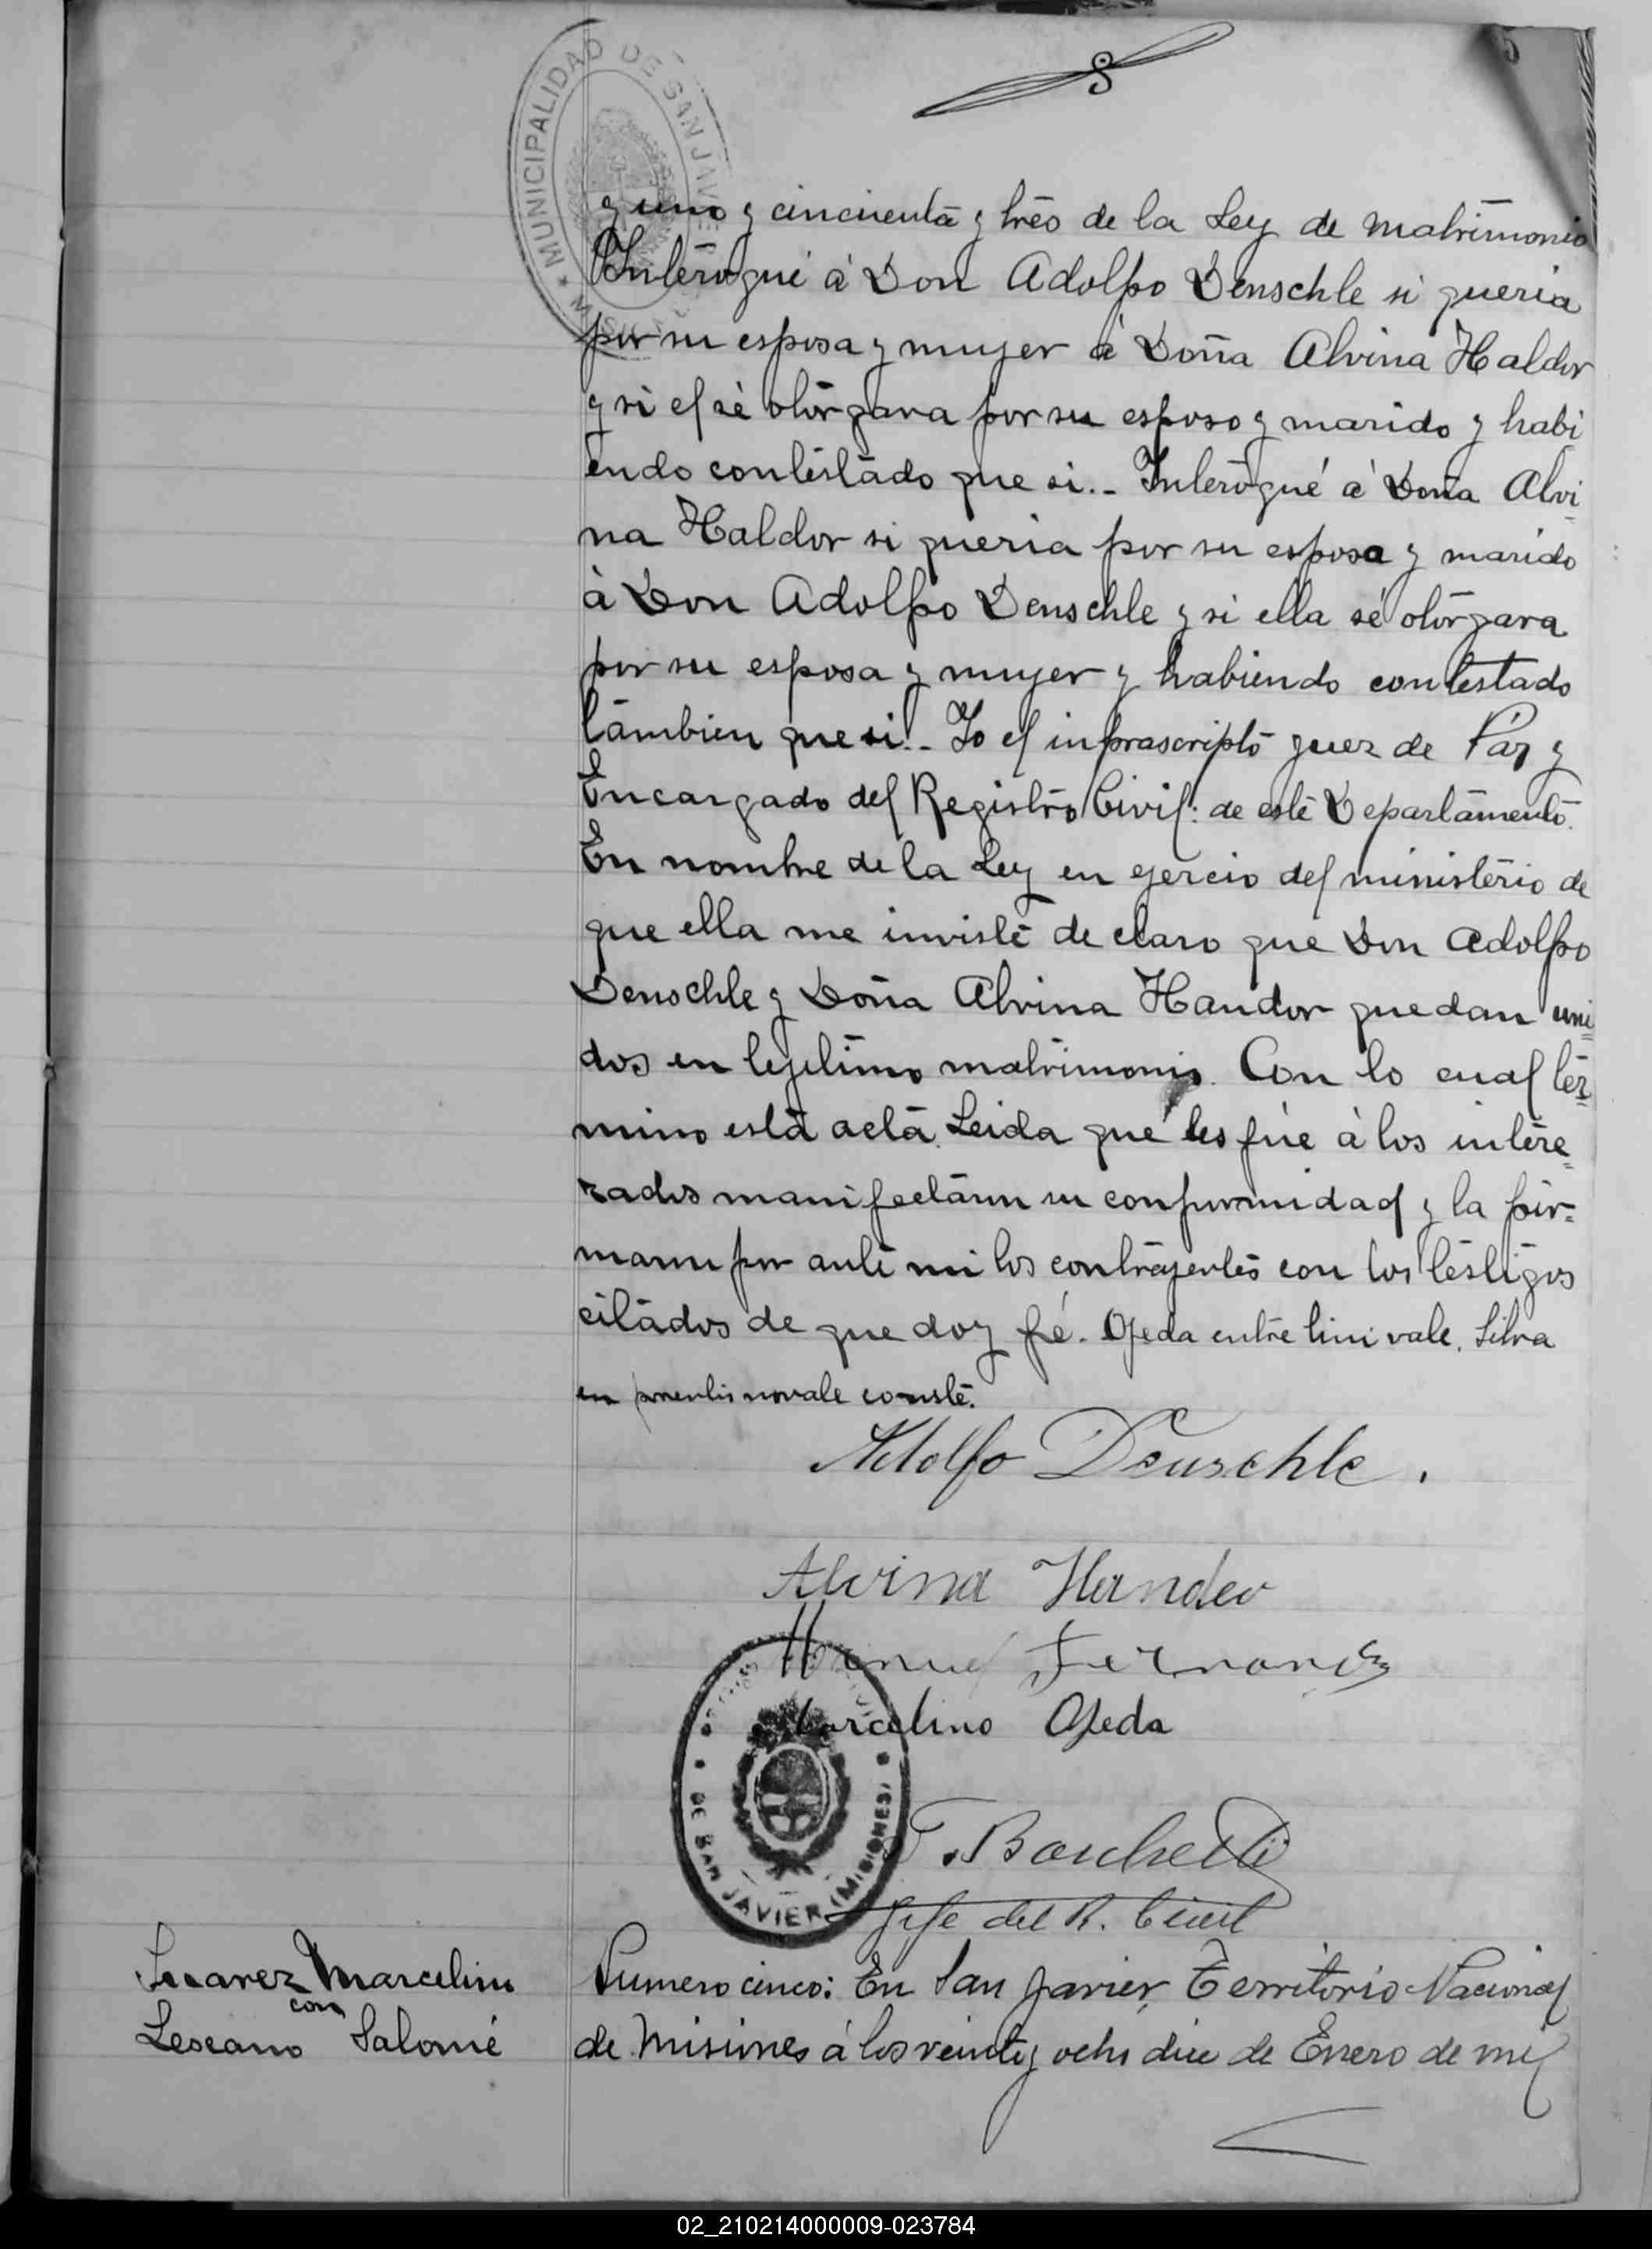 MUNICIPALIDAD DE SAN JAVIER
5
y uno y cincuenta y tres de la Ley de matrimonio
Interogué á Don Adolfo Denschle si queria
por su esposa y muger á Doña Alvina Haldor
y si el sé otorgara por su esposo y marido y habi
endo contestado que si.- Interogué á Doña Alvi
na Haldor si queria por su esposa y marido
á Don Adolfo Denschle y si ella sé otorgara
por su esposa y muger y habiendo contestado
tambien que si.- Yo el infrascripto juez de Páz y
Encargado del Registro Civil: de este Departamento.
En nombre de la Ley en ejercio del ministerio de
que ella me inviste de claro que Don Adolfo
Denschle y Doña Alvina Handor quedan uni
dos en lejitimo matrimonio. Con lo cual tér
mino está acta. Leida que les fué á los intere
zados manifectaron su conformidad y la fir-
maron por ante mi los contrayentes con los testigos
citados de que doy fé. Ojeda entre lini vale. Silva
en parentis no vale conste.
Adolfo Deuschle.
Alvina Handor
Manuel Fernand
Marcelino Ojeda
Jefe del R. Civil
DE SAN JAVIER (MISIONES)
Suarez Marcelino
con
Lescano Salomé
Numero cinco: En San Javier, Territorio Nacional
de Misiones á los veinte y ocho dias de Enero de mil
02_210214000009-023784